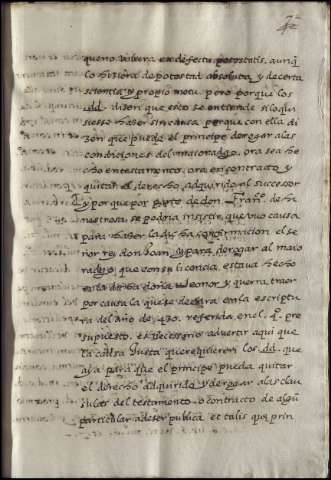 queno ubiera en defecto potestatis, aunq̃
lo hiziera de potestad absoluta y de cierta
scientia y propio motu, pero porque los
dd. dizen que esto se entiende si lo qui
siesse hazer sin causa, porque con ella di
zen que puede el principe derogar a las
condiciones del maioradgo, ora sea he
cho en testamento, ora en contracto y
quitar el derecho adquirido al successor
Y porque por parte de don Fran.co de hi
nestrosa se podria insistir, que uvo causa
para haber la dicha confirmacion el se
ñor rei don Joan, y para derogar al maio
radgo, que con su licencia, estava hecho
en la de doña Leonor, y querra traer
por causa la que se declara en la escriptu
ra del año de 430. referida en el q. pre
supuesto. es necessario advertir aqui que
la causa justa que requirieren los dd. que
aya para que el principe pueda quitar
el derecho adquirido, y derogar a las clau
sulas del testamento o contracto de algũ
particular a de ser publica et talis qui prin